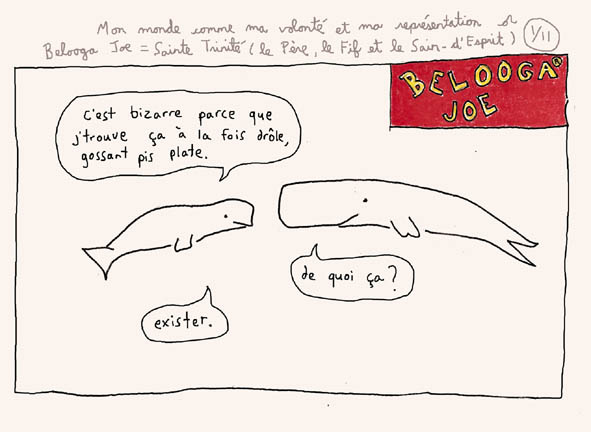 Mon monde comme ma volonté et ma représentation ou
Belooga Joe = Sainte Trinité (le Père, le Fif et le Sain-d'Esprit)
1/11
BELOOGA®
JOE
c'est bizarre parce que
j'trouve ça à la fois drôle,
gossant pis plate.
de quoi ça?
exister.